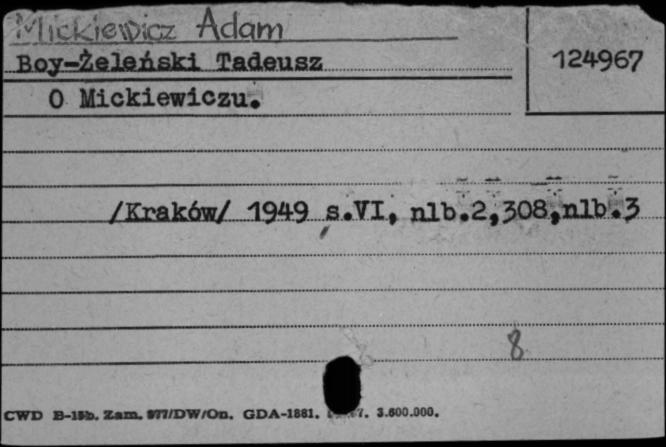 Mickiewicz Adam
Boy-Żeleński Tadeusz
124967
O Mickiewiczu.
/Kraków/ 1949 s.VI, nlb.2,308,nlb.3
8
CWD B-15b. Zam. 977/DW/On. GDA-1881. 3.600.000.